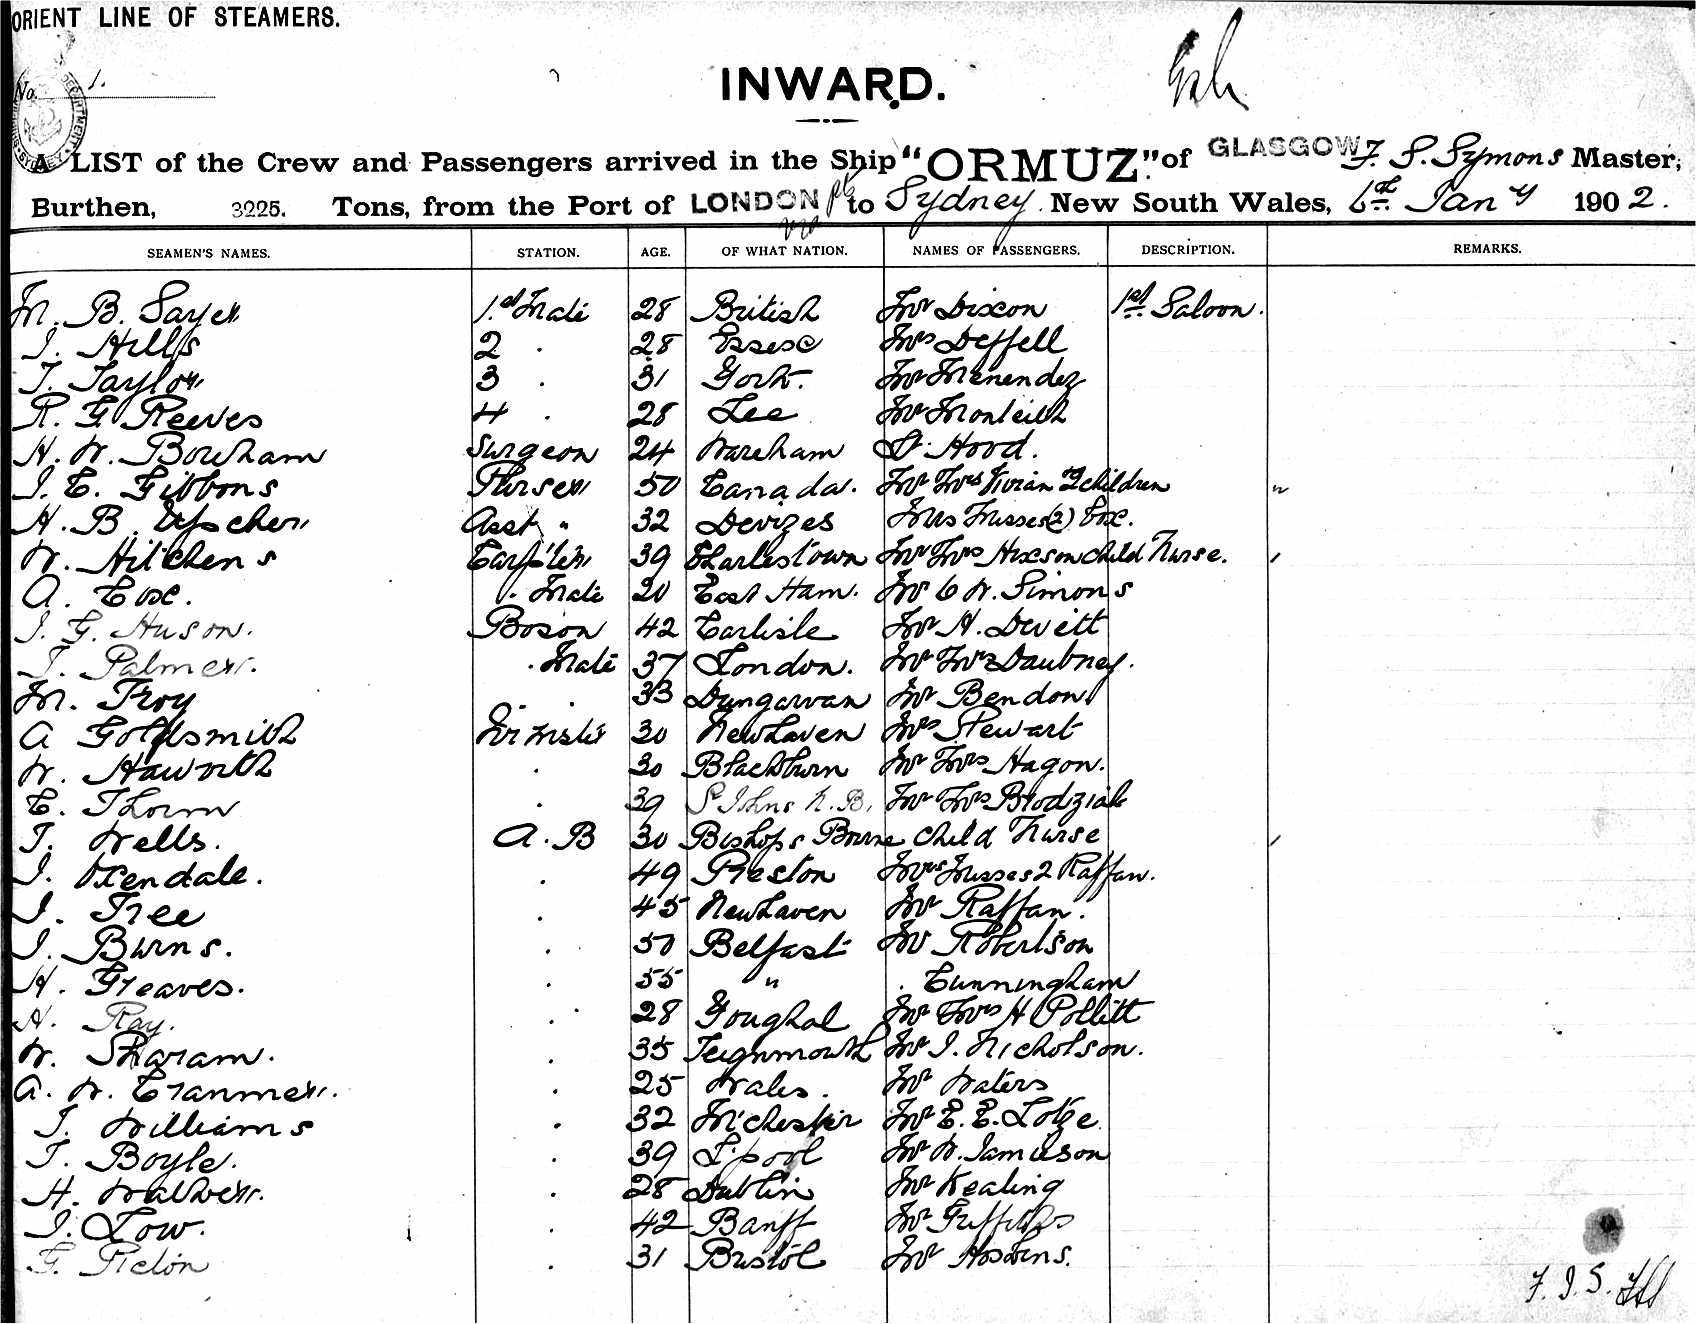 ORIENT LINE OF STEAMERS.
No. 1.
INWARD.
A LIST of the Crew and Passengers arrived in the Ship "ORMUZ." of GLASGOW F. S. Symons Master,
Burthen, 3225. Tons, from the Port of LONDON to Sydney New South Wales, 6th Jany 1902.
SEAMEN'S NAMES. STATION. AGE. OF WHAT NATION. NAMES OF PASSENGERS. DESCRIPTION. REMARKS.
M. B. Sayer 1st Mate 28 British Mr Dixon 1st Saloon.
J. Hills 2 . 28 Essex Mrs Deffell
T. Taylor 3 . 31 York. Mr Menendez
R. G. Reeves 4 . 28 Lee Mr Monteith
H. W. Bowham Surgeon 24 Wareham Dr Hood.
J. E. Gibbons Purser 50 Canada. Mr Mrs Vivian 2 children "
H. B. Upcher Asst " 32 Devizes Mrs Misses (2) Cox.
W. Hitchens Carp'ter 39 Charlestown Mr Mrs Hixson child Nurse.
A. Cox. . Mate 20 East Ham. Mr C W. Simons
J. G. Huson. Boson 42 Carlisle Mr H. Devitt
J. Palmer. . Mate 37 London. Mr Mrs Daubney.
M. Troy . . 33 Dungarvan Mr Bendon
A Goldsmith 30 Newhaven Mrs Stewart
W. Haworth . 30 Blackburn Mr Mrs Hagon.
E. Thorn . 39 St Johns N. B. Mr Mrs Brodziak
T. Wells. A. B 30 Bishops Bourne child Nurse
J. Oxendale. . 49 Preston Mrs Misses 2 Raffan.
J. Tree . 45 Newhaven Mr Raffan.
J. Burns. . 50 Belfast Mr Robertson
H. Greaves. . 55 " . Cunningham
H. Ray. . 28 Youghal Mr Mrs H Pollitt
W. Sharam. . 35 Teignmouth Mr J. Nicholson.
A. W. Cranmer. . 25 Wales. Mr Waters
J. Williams . 32 M'chester Mr E. E. Lotze.
T. Boyle. . 39 L'pool Mr W. Jamieson
H. Walker. . 28 Dublin Mr Keating
J. Low. . 42 Banff Mr Griffiths
G. Picton . 31 Bristol Mr Hoskins.
F. J. S.